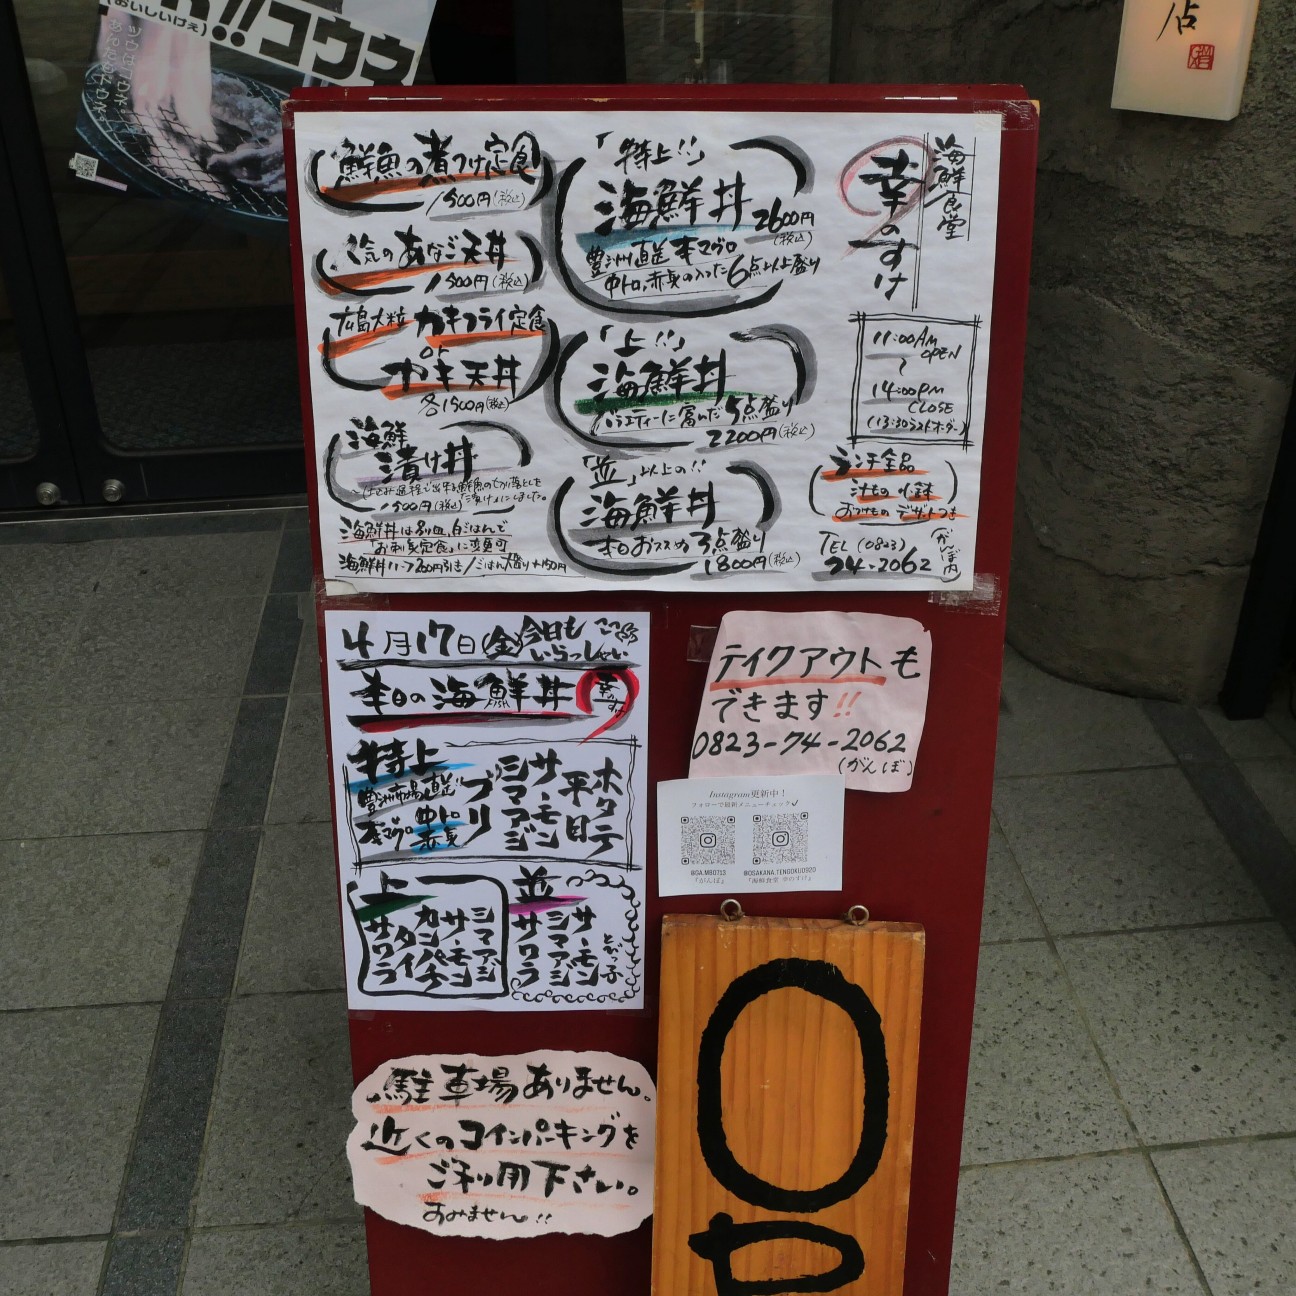 (おいしいけぇ)
!!コウネ
海鮮食堂
幸のすけ
11:00AM
OPEN
14:00PM
CLOSE
(13:30ラストオーダー)
ランチ全品
汁もの 小鉢
おつけもの デザートつき
TEL (0823)
74-2062
(がんぼ内)
「特上!!」
海鮮丼
2600円
(税込)
豊洲直送 本マグロ
中トロ,赤身の入った6点以上盛り
「上!!」
海鮮丼
バラエティーに富んだ 5点盛り
2200円(税込)
「並」以上の!!
海鮮丼
本日おススメ 3点盛り
1800円(税込)
鮮魚の煮つけ定食
1500円(税込)
人気のあなご天丼
1500円(税込)
広島大粒 カキフライ定食
or
カキ天丼
各1500円(税込)
海鮮
漬け丼
1500円(税込)
「漬け」にしました。
海鮮丼は別皿,白ごはんで
「お刺身定食」に変更可
海鮮丼ハーフ200円引き/ごはん大盛り+150円
4月17日(金)今日も
いらっしゃい
本日の海鮮丼
幸のすけ
特上
豊洲市場直送
本マグロ 中トロ 赤身
ブリ
シマアジ
サーモン
平目
ホタテ
上
サワラ
タイ
カンパチ
サーモン
シマアジ
並
サワラ
シマアジ
サーモン
とびっ子
テイクアウトも
できます!!
0823-74-2062
(がんぼ)
Instagram更新中!
フォローで最新メニューチェック✓
@GA.MBO713
「がんぼ」
@OSAKANA.TENGOKU0920
「海鮮食堂 幸のすけ」
駐車場ありません。
近くのコインパーキングを
ご利用下さい。
すみません!!
O
P
店